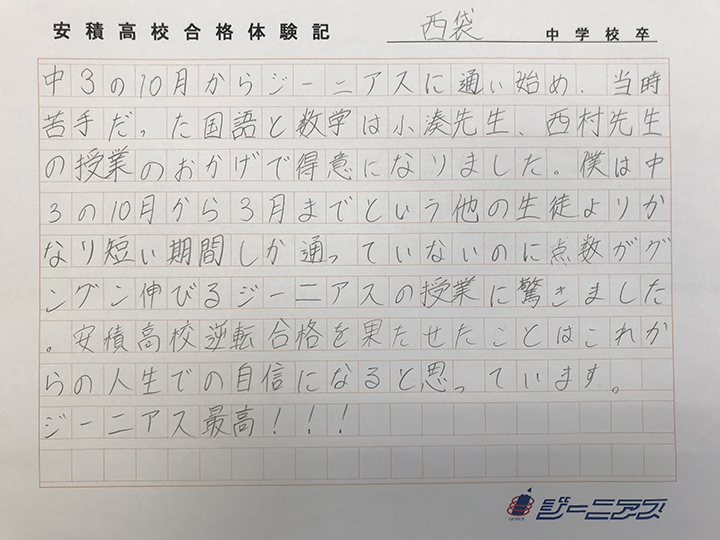 安積高校合格体験記 西袋 中学校卒
中3の10月からジーニアスに通い始め、当時
苦手だった国語と数学は小湊先生、西村先生
の授業のおかげで得意になりました。僕は中
3の10月から3月までという他の生徒よりか
なり短い期間しか通っていないのに点数がグ
ングン伸びるジーニアスの授業に驚きました
。安積高校逆転合格を果たせたことはこれか
らの人生での自信になると思っています。
ジーニアス最高！！！
GENIUS ジーニアス